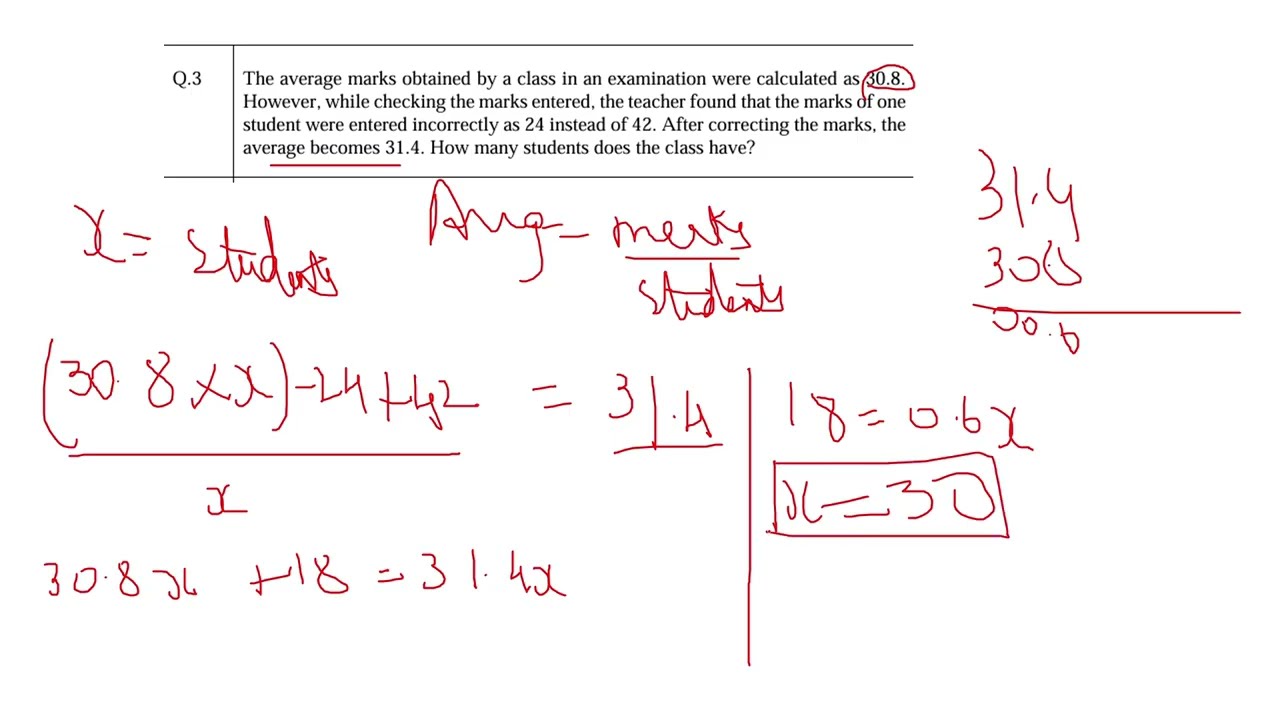 Q.3 The average marks obtained by a class in an examination were calculated as 30.8.
However, while checking the marks entered, the teacher found that the marks of one
student were entered incorrectly as 24 instead of 42. After correcting the marks, the
average becomes 31.4. How many students does the class have?
x = students
Avg = marks
students
31.4
30.8
00.6
(30.8 × x) - 24 + 42 = 31.4
x
30.8x + 18 = 31.4x
18 = 0.6x
x = 30